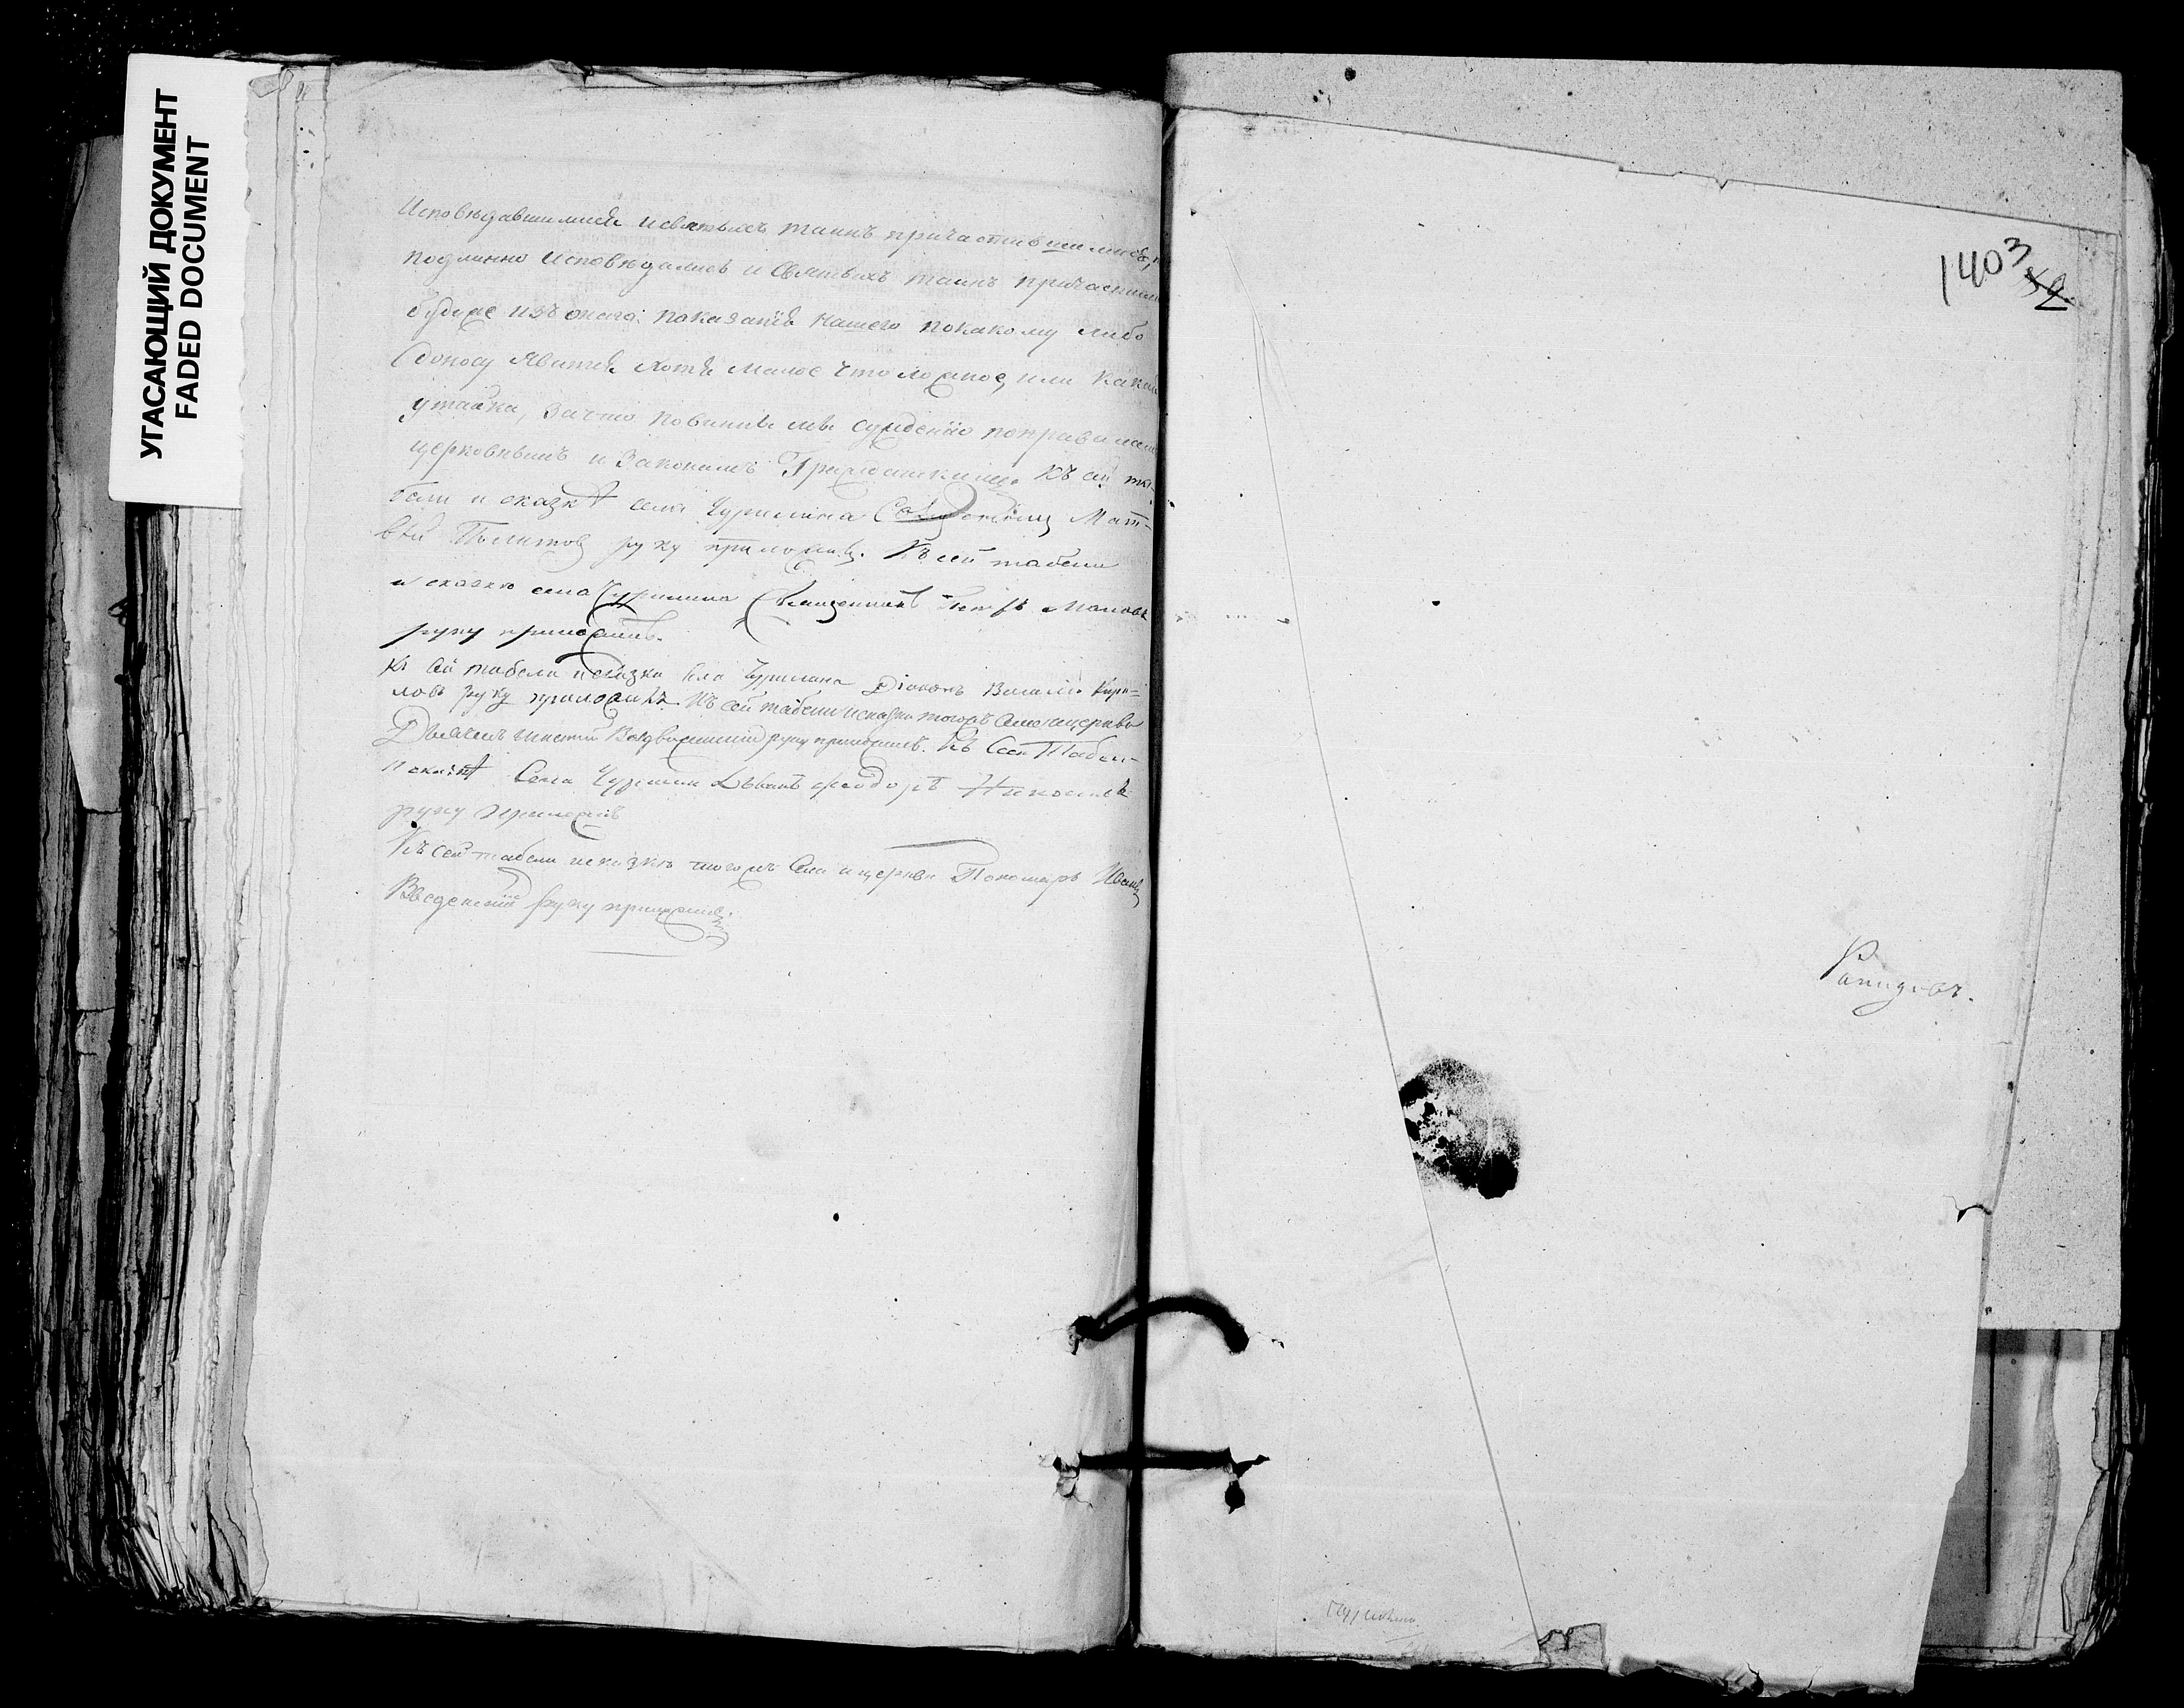 УГАСАЮЩИЙ ДОКУМЕНТ
FADED DOCUMENT
Исповѣдавшимися и святыхъ таинъ причастившимися,
подлинно исповѣдались и Святыхъ таинъ причастились
будеже изъ онаго показанія нашего покакому либо
доносу явится хотя малое что ложное, или какая
утайка, зачто повинны мы сужденію поправиламъ
церковнымъ и Законамъ Гражданскимъ. Къ сей та-
бели и сказкѣ села Чурилина Священникъ Мат-
вѣй руку приложилъ. Къ сей табели
и сказкѣ села Чурилина Священникъ Петръ
руку приложилъ.
Къ сей табели исказки села Чурилина Діаконъ Василій Кири-
ловъ руку приложилъ Къ сей табели исказки тогожъ Села ицеркви
Дьячекъ Воздвиженскій руку приложилъ. Къ Сей Табели
и сказкѣ Села Чурилина Ѳеодоръ
руку приложилъ
Къ сей табели исказкѣ тогожъ Села ицеркви Пономарь Иванъ
Введенскій руку приложилъ.
1403
52